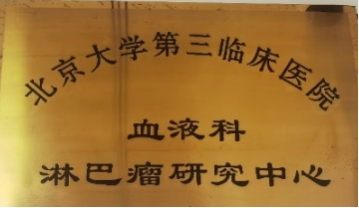 北京大学第三临床医院
血液科
淋巴瘤研究中心